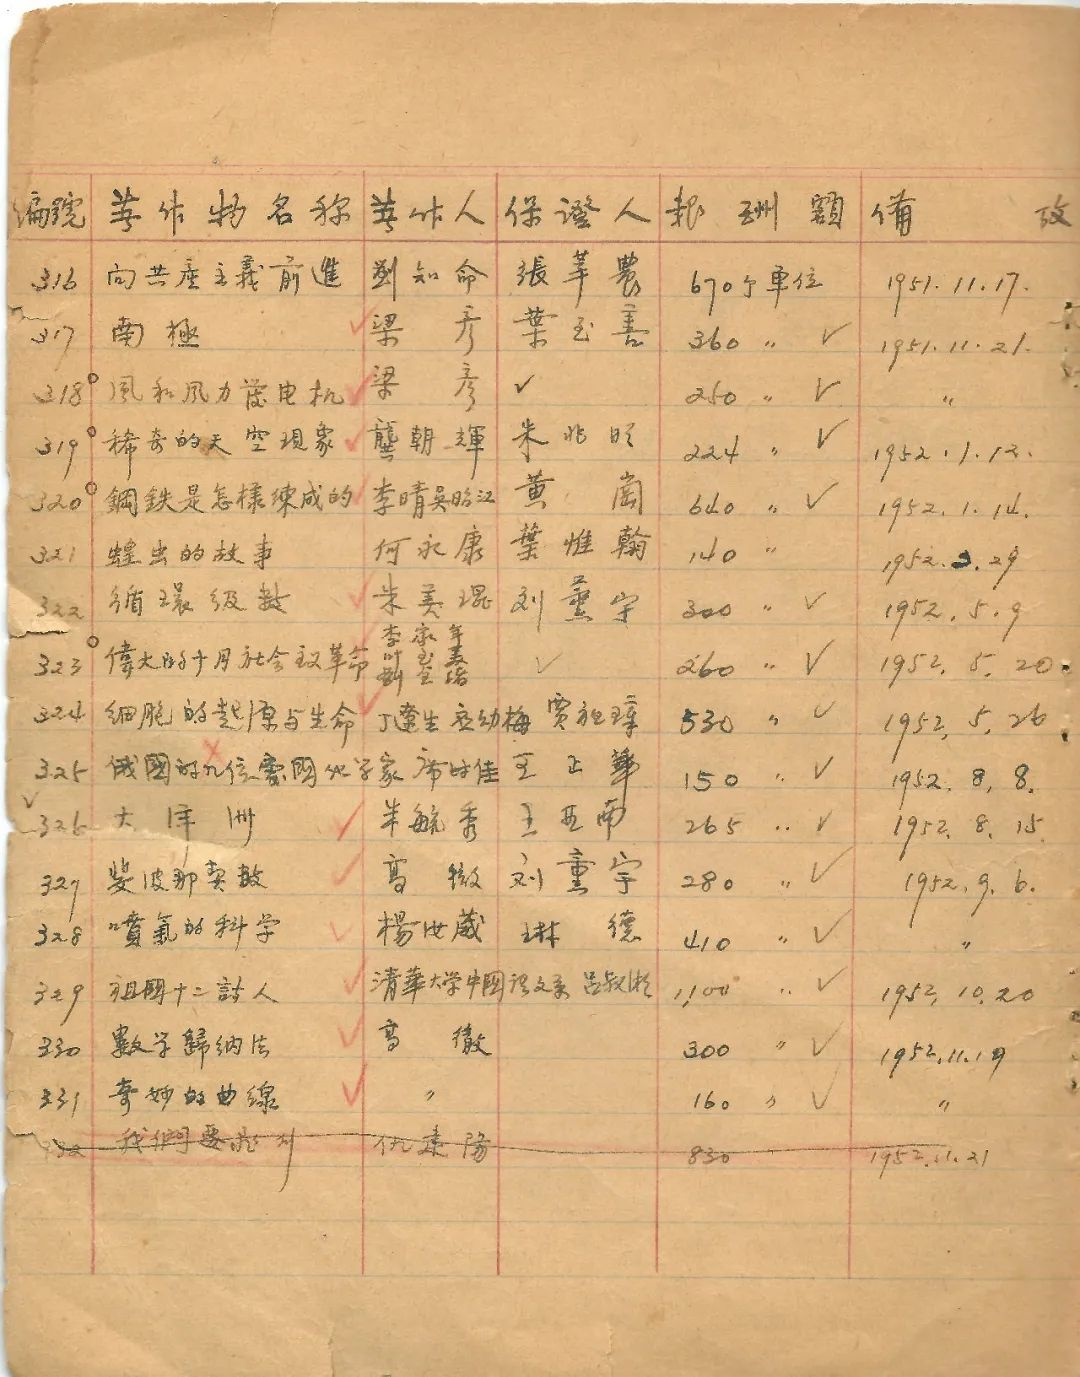 編號 著作物名称 著作人 保證人 報酬額 備攷
316 向共産主義前進 劉知命 張莘農 670个單位 1951.11.17.
317 南極 ✓ 梁彦 葉至善 360 〃 ✓ 1951.11.21.
318 風和風力發电机 ✓ 梁彦 ✓ 250 〃 ✓ 〃
319 稀奇的天空現象 ✓ 龔朝暉 朱兆 224 〃 ✓ 1952.1.12.
320 鋼鉄是怎樣練成的 ✓ 李晴 吳昭江 黄 640 〃 ✓ 1952.1.14.
321 蝗虫的故事 何永康 葉惟翰 140 〃 1952.3.29
322 循環级数 ✓ 朱美琨 刘薰宇 300 〃 ✓ 1952.5.9
323 偉大的十月社会主义革命 李家年 叶至善 劉 ✓ 260 〃 ✓ 1952.5.20
324 細胞的起源与生命 ✓ 丁達生 應幼梅 賈祖璋 530 〃 ✓ 1952.5.26
325 俄國的九位 家 席时佳 王正華 150 〃 ✓ 1952.8.8.
✓ 326 大洋洲 ✓ 朱毓秀 王亚南 265 〃 ✓ 1952.8.15.
327 斐波那契数 ✓ 高徹 刘薰宇 280 〃 ✓ 1952.9.6.
328 噴氣的科学 ✓ 楊汝葳 琳德 410 〃 ✓ 〃
329 祖國十二詩人 ✓ 清華大学中國語文系 吕叔湘 1,100 〃 ✓ 1952.10.20
330 數学歸纳法 ✓ 高徹 300 〃 ✓ 1952.11.19
331 奇妙的曲線 ✓ 〃 160 〃 ✓ 〃
332 我們要 仇遠陽 830 1952.11.21